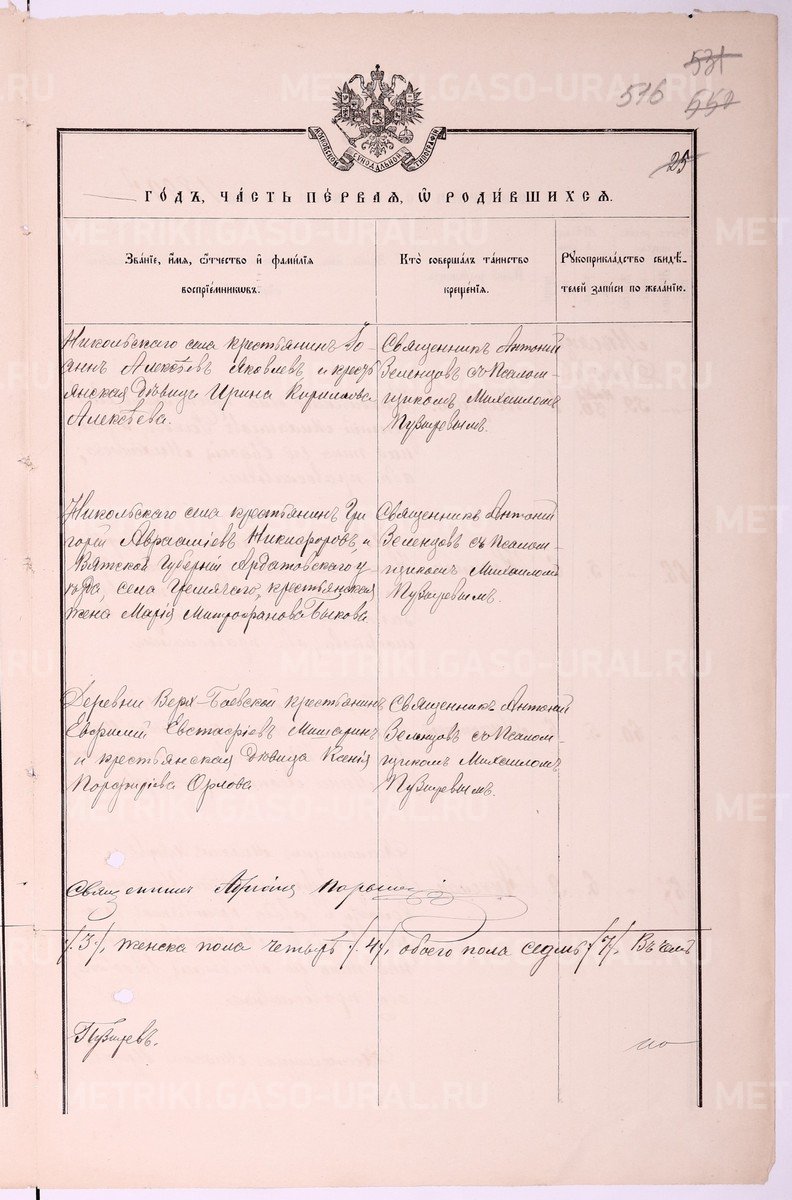 METRIKI.GASO-URAL.RU
531
516 552
МОСКОВСКОЙ СѴНОДАЛЬНОЙ ТИПОГРАФІИ
25
ГО́ДЪ, ЧА́СТЬ ПЕ́РВАЯ, Ѡ҆ РОДИ́ВШИХСѦ.
Зва́нїе, и҆́мѧ, ѻ҆́тчество и҆ фами́лїѧ
воспрїе́мникѡвъ.
Кто̀ соверша́лъ та́инство
креще́нїѧ.
Рꙋкоприкла́дство свидѣ́-
телей за́писи по жела́нїю.
Никольскаго села крестьянинъ Іо-
аннъ Алексѣевъ Яковлевъ и кресть
янская дѣвица Ирина Кириллова
Алексѣева.
Священникъ Антоній
Зеленцовъ съ Псалом-
щикомъ Михаиломъ
Пузыревымъ.
Никольскаго села крестьянинъ Гри
горій Авраміевъ Никифоровъ, и
Вятской Губерніи Ардатовскаго у
ѣзда, села крестьянская
жена Марія Митрофанова Быкова
Священникъ Антоній
Зеленцовъ съ Псалом-
щикомъ Михаиломъ
Пузыревымъ.
Деревни Верх-Боевской крестьянинъ
Евфимій Евстафіевъ Мишаринъ
и крестьянская дѣвица Ксенія
Порфиріева Орлова
Священникъ Антоній
Зеленцовъ съ Псалом-
щикомъ Михаиломъ
Пузыревымъ.
Священникъ
/3/, женска пола четыре /4/, обоего пола седмь /7/. Въ чемъ
Пузыревъ.
но